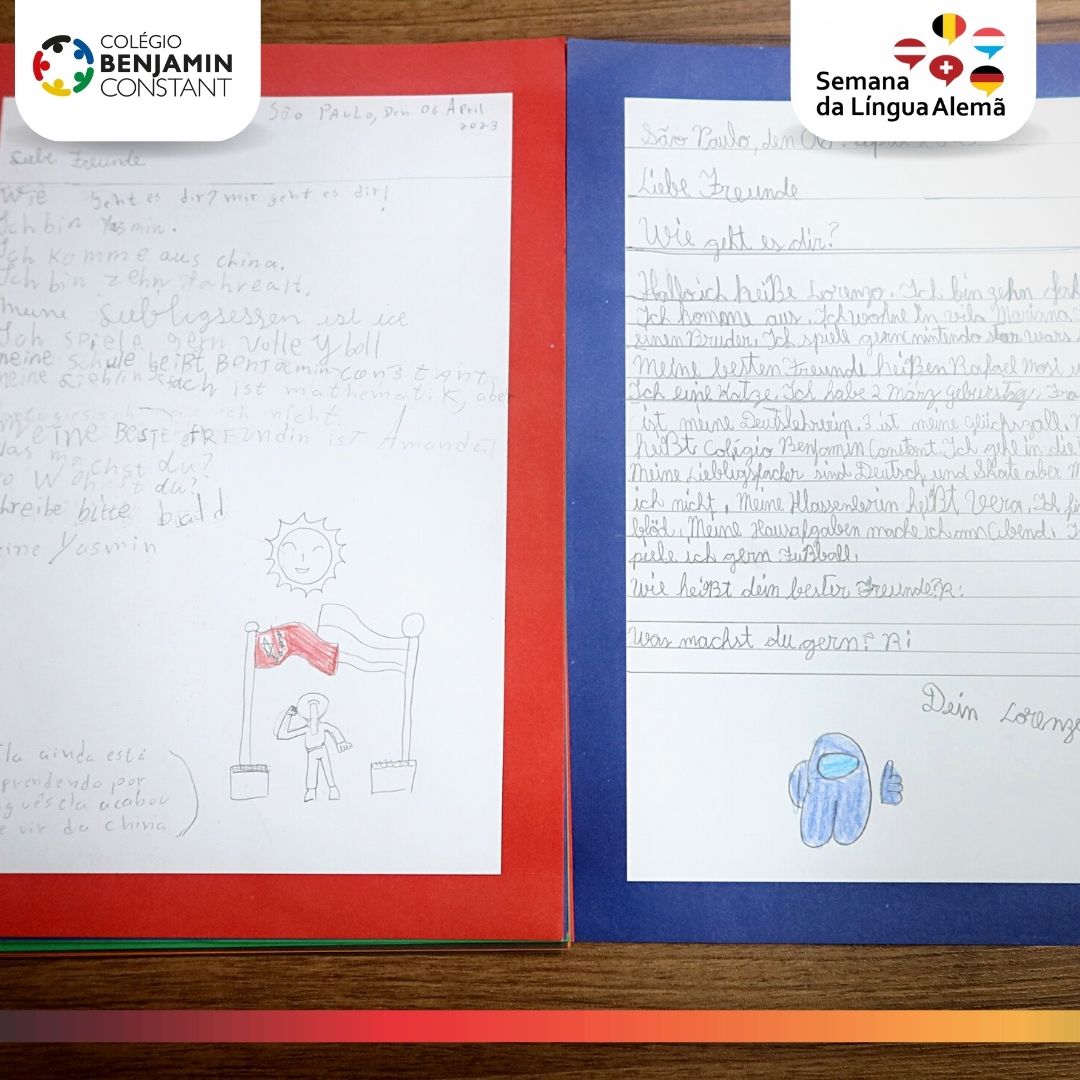 COLÉGIO
BENJAMIN
CONSTANT
Semana
da Língua Alemã
São PAULO, Den 06 April
2023
Liebe Freunde
Wie geht es dir? mir geht es dir!
Ich bin Yasmin.
Ich komme aus china.
Ich bin zehn Jahrealt.
meine Liebligsessen ist ice
Ich spiele gern Volleyball
meine schule heißt BENJAMIN CONSTANT,
meine Lieblinsfach ist mathematik, aber
ich nicht.
meine BESTE FREUNDin isT Amanda!
was machst du?
wo Wohnst du?
schreibe bitte bald
Deine Yasmin
ainda está
prendendo por
guês ela acabou
e vir da china
São Paulo, den 06. April 2023
Liebe Freunde
Wie geht es dir?
Hallo ich heiße Lorenzo. Ich bin zehn Jah
Ich komme aus. Ich wohne in vila Mariana
einen Bruder. Ich spiele gern nintendo star wars
Meine besten Freunde heißen Rafael Mori
Ich eine Katze. Ich habe 2 März geburstag. Fra
ist meine Deutslehrerin. 3 ist meine glückszall.
heißt Colégio Benjamin Constant. Ich geh in die
Meine Liebligsfächer sind Deutsch und Skate aber M
ich nicht. Meine Klassenlerin heißt Vera. Ich fi
blöd. Meine Hausafgaben mache ich am Abend. I
piele ich gern Fußball.
Wie heißt dein bester Freunde? R:
Was machst du gern? R:
Dein Lorenzo